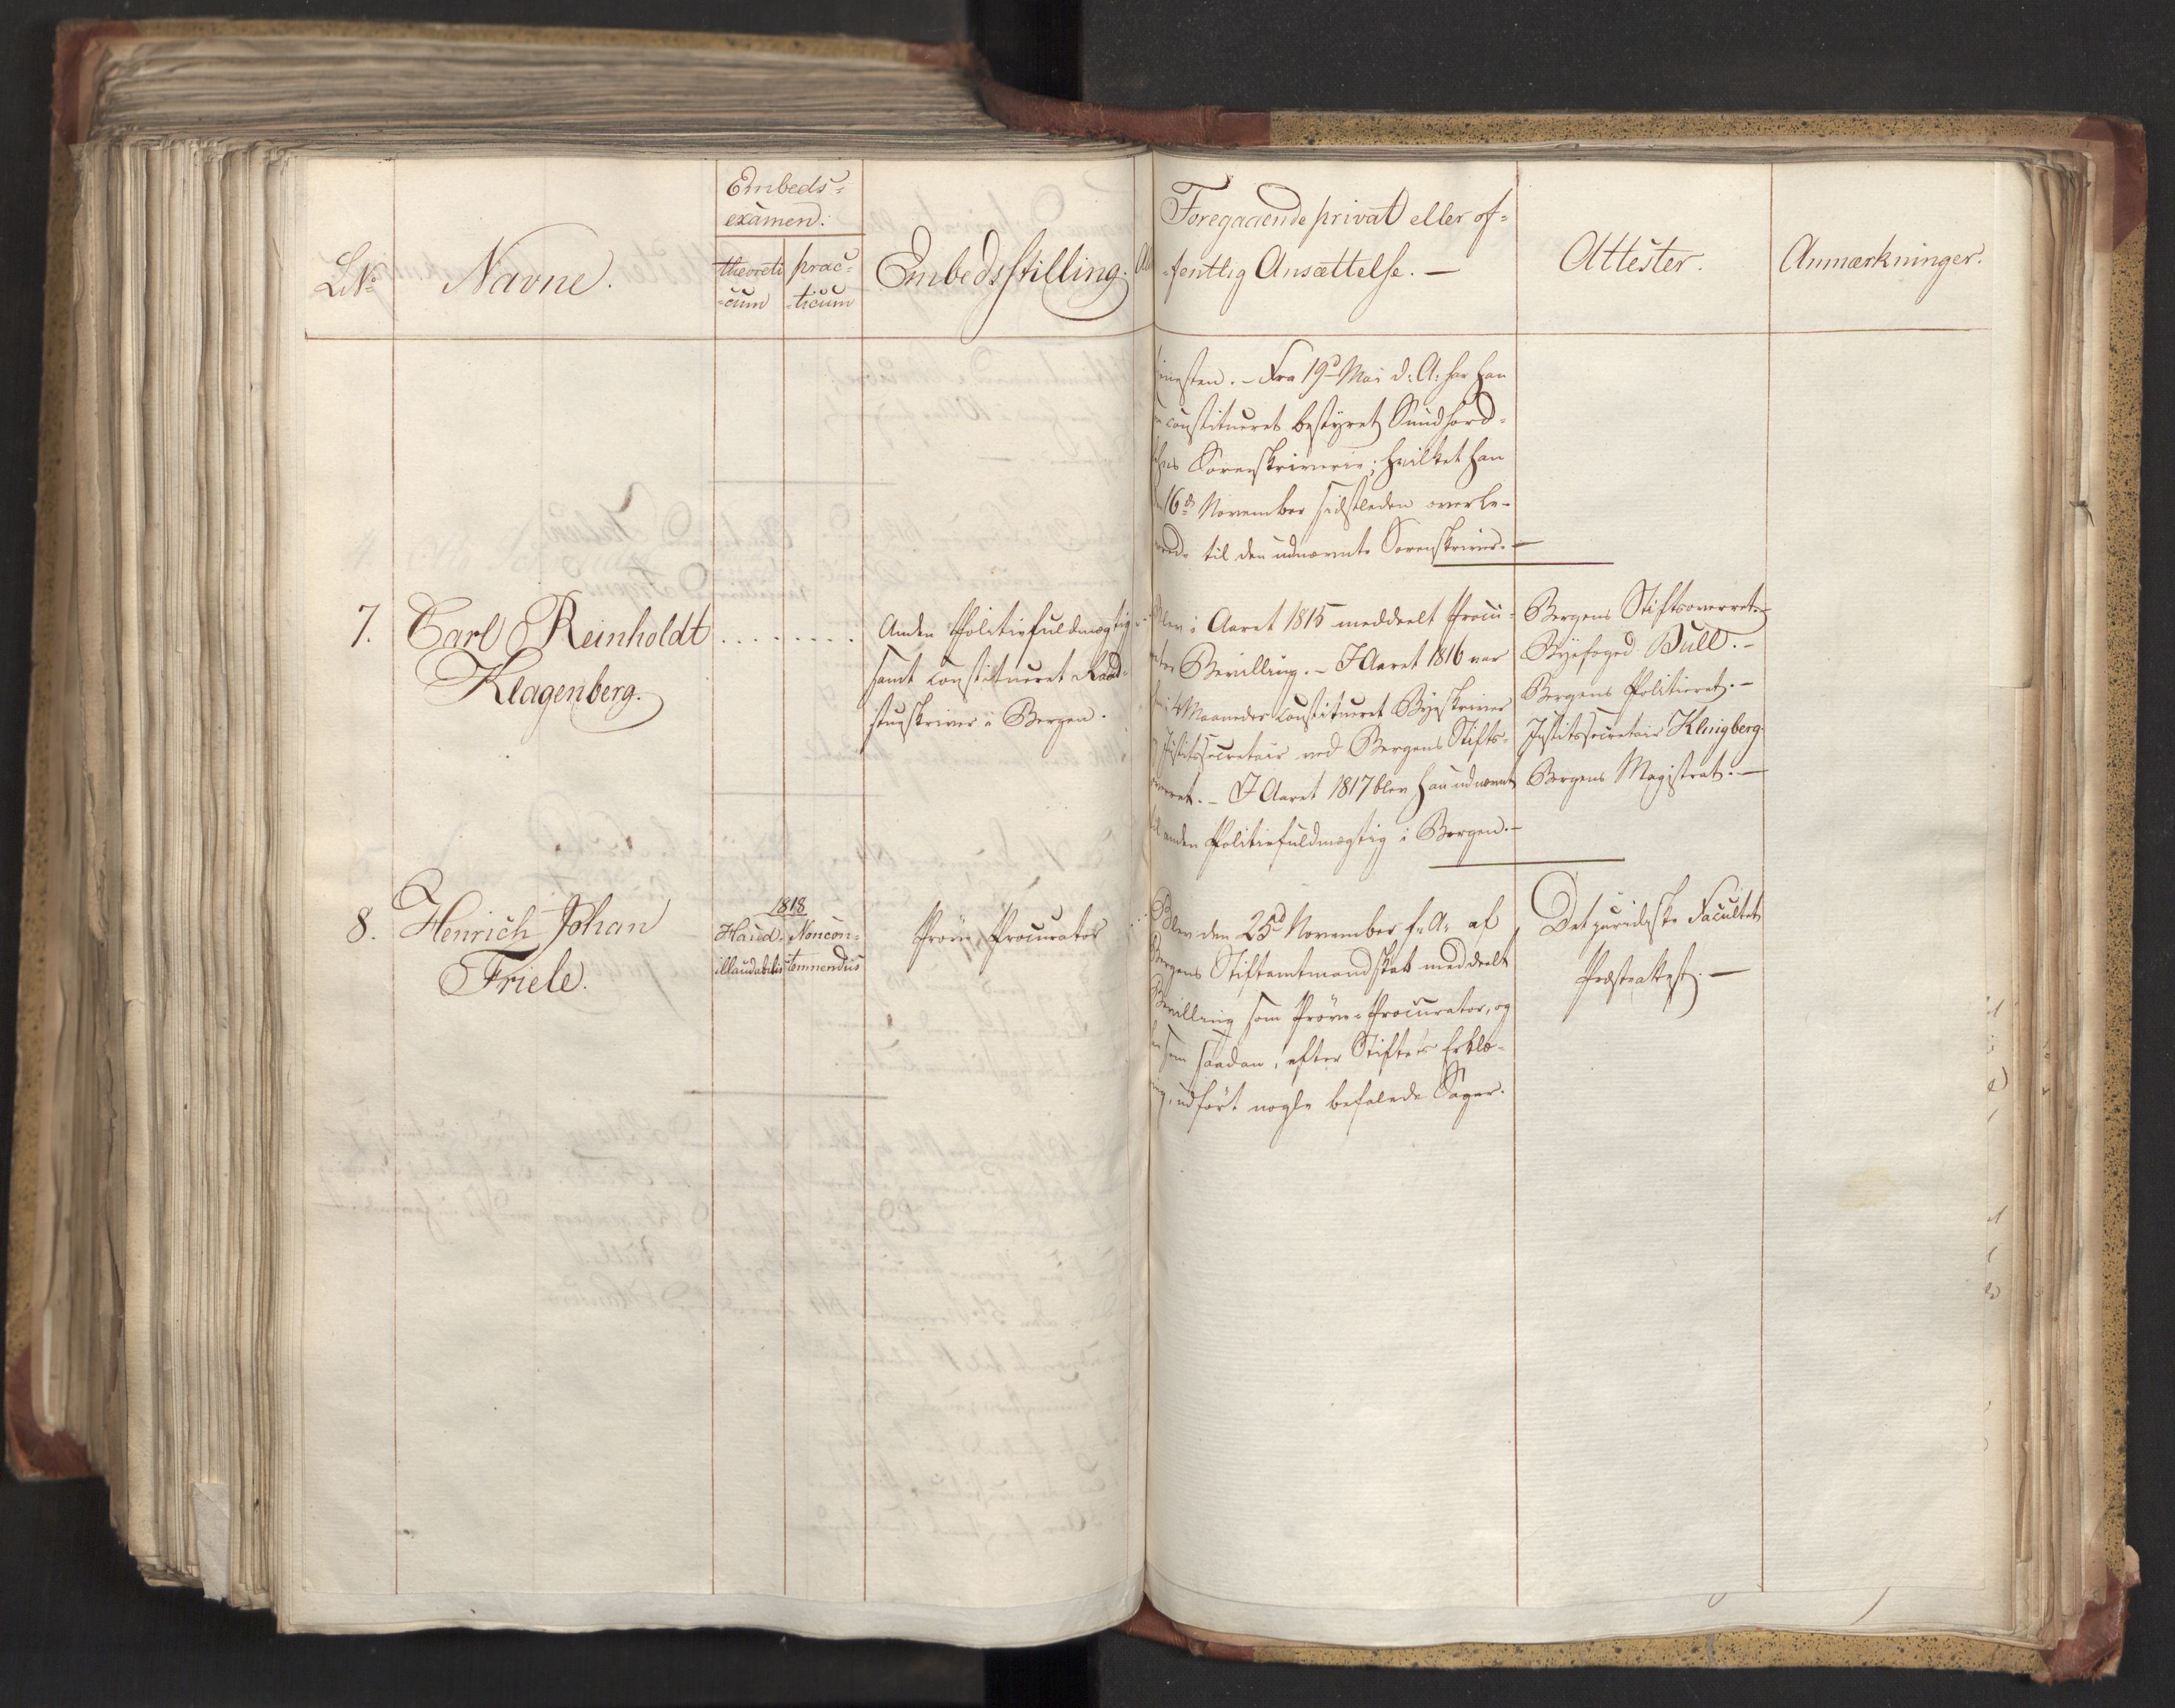 L.No
Navne.
Embeds-
examen.
theoreti
-cum
prac-
-ticum
Embedsstilling.
Foregaaende privat eller of-
-fentlig Ansættelse. —
Attester.
Anmærkninger.
- Fra 19d Mai d: A: har han
constitueret bestyret Sundhord-
Sorenskriverie; hvilket han
16de November sidstleden overle-
til den udnævnte Sorenskriver. —
7.
Carl Reinholdt
Klagenberg.
Anden Politiefuldmægtig
samt constitueret Raad-
stueskriver i Bergen.
Blev i Aaret 1815 meddeelt Procu-
Bevilling. - I Aaret 1816 var
4 Maaneder constitueret Byeskriver
Justitssecretair ved Bergens Stifts-
- I Aaret 1817 blev han udnævnt
anden Politiefuldmægtig i Bergen. —
Bergens Stiftsoverret.
Byefoged Bull. -
Bergens Politieret. -
Justitssecretair Klingberg.
Bergens Magistrat. —
8.
Henrich Johan
Friele.
1818
Haud-
illaudabilis
Noncon-
temnendus
Prøve-Procurator
Blev den 25d November f: A: af
Bergens Stiftamtmandskab meddeelt
Bevilling som Prøve-Procurator, og
som saadan, efter Stiftets Erklæ-
udført nogle befalede Sager.
Det juridiske Facultet
Præsteattest. —